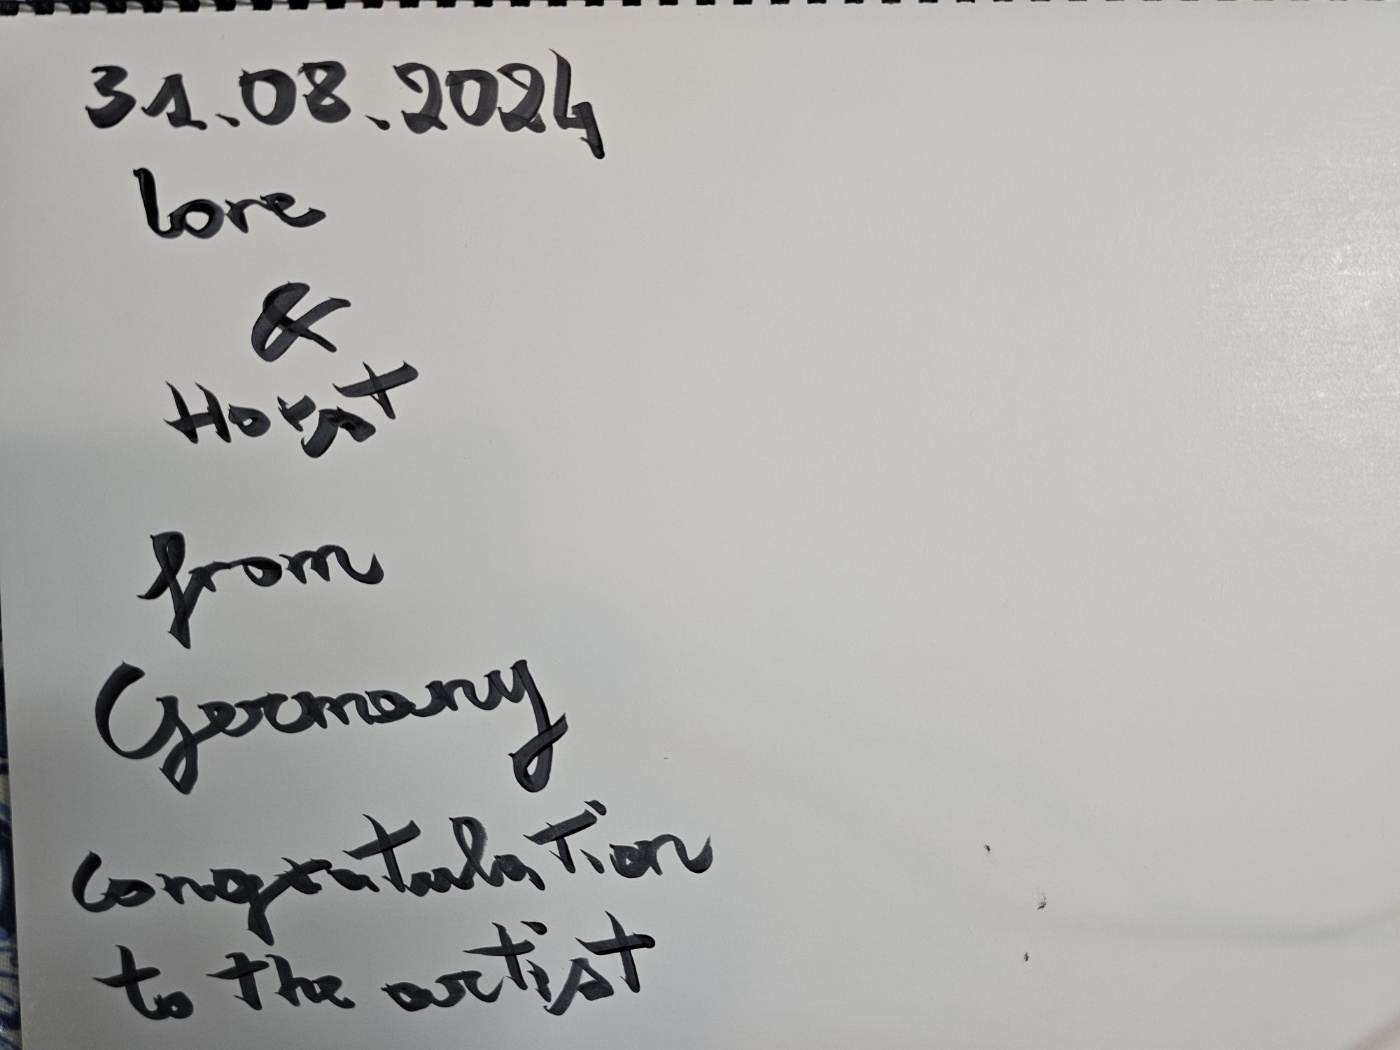 31.08.2024
Lore
&
Horst
from
Germany
Congratulation
to the artist